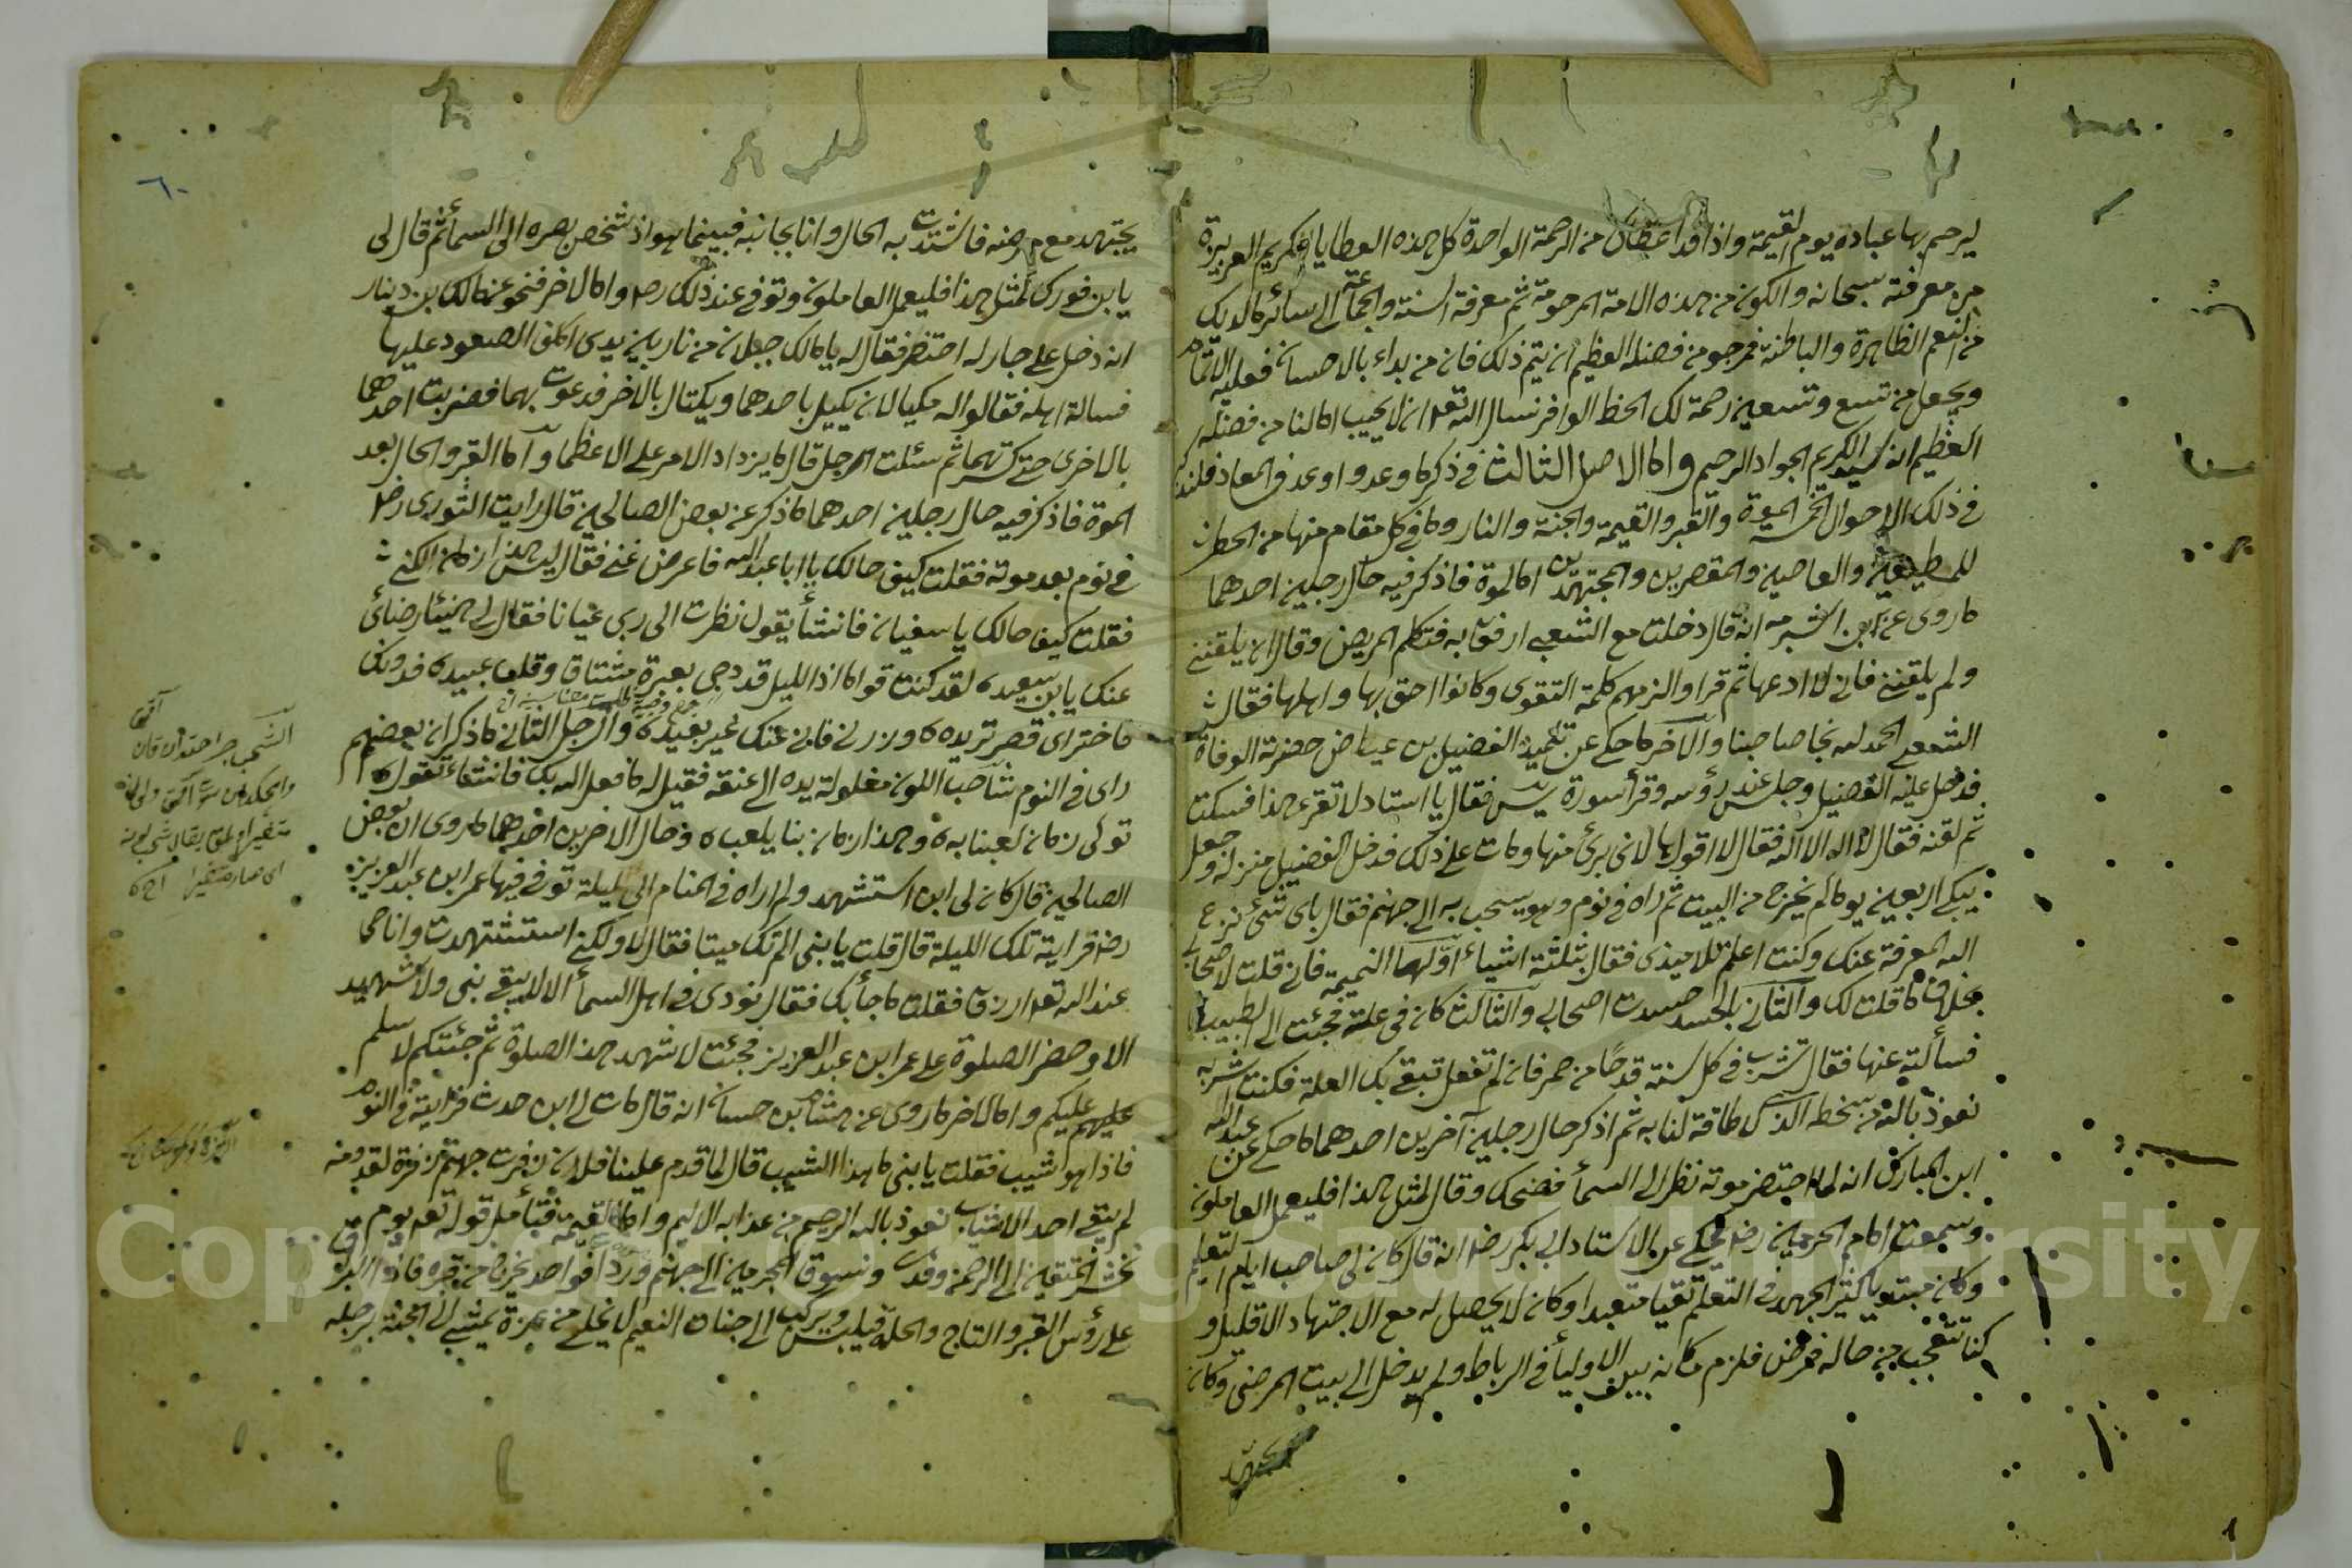 ليرحم بها عباده يوم القيمة واذا قد اعطاك من الرحمة الواحدة كل هذه العطايا الكريم العزيزة
من معرفته سبحانه والكون من هذه الامة المرحومة ثم معرفة السنة والجماعة الى سائر ما لديك
من النعم الظاهرة والباطنة فمرجو من فضله العظيم ان يتم ذلك فان من بداء بالاحسان فعليه الاتمام
ويجعل من تسع وتسعين رحمة لك الحظ الوافر نسال الله تع ان لا يخيب امالنا من فضله
العظيم انه سيد الكريم الجواد الرحيم واما الاصل الثالث في ذكر ما وعد واوعد في المعاد فلنذكر
في ذلك الاحوال الخمسة الموة والقبر والقيمة والجنة والنار وما في كل مقام منها من الخطر
للمطيعين والعاصين والمقصرين والمجتهدين اما الموة فاذكر فيه حال رجلين احدهما
ما روى عن ابن الشبرمه انه قال دخلت مع الشعبي ارفق به فتكلم المريض وقال ان يلقنني
ولم يلقنني فاني لا ادعها ثم قرا والزمهم كلمة التقوى وكانوا احق بها واهلها فقال
الشعبي الحمد لله نجا صاحبنا والاخر ما حكي عن تلميذ الفضيل بن عياض حضرته الوفاة
فدخل عليه الفضيل وجلس عند رؤسه وقرأ سورة يس فقال يا استاد لا تقرء هذا فسكت
ثم لقنه فقال لا اله الا الله فقال لا اقولها لاني برئ منها ومات على ذلك فدخل الفضيل منزله وجعل
يبكي اربعين يوما لم يخرج من البيت ثم راه في نوم وهو يسحب به الى جهنم فقال باى شئ نزع
الله المعرفة عنك وكنت اعلم تلاميذى فقال بثلثة اشياء اولها النميمة فاني قلت لاصحابي
بخلاف ما قلت لك والثاني بالحسد حسدت اصحابي والثالث كان في علة فجئت الى الطبيب
فسألته عنها فقال تشرب في كل سنة قدحا من خمر فان لم تفعل تبقى بك العلة فكنت اشربه
نعوذ بالله من سخطه الذى لا طاقة لنا به ثم اذكر حال رجلين آخرين احدهما ما حكي عن عبد الله
ابن المبارك انه لما احتضر موته نظر الى السمأ فضحك وقال لمثل هذا فليعمل العاملون
وسمعت امام الحرمين رض يحكي عن الاستاد ابي بكر رض انه قال كان لى صاحب ايام التعليم
وكان مبتديا كثير الجهد في التعلم تقيا متعبدا وكان لا يحصل له مع الاجتهاد الا قليل و
كنا نتعجب من حاله فمرض فلزم مكانه بين الاوليأ في الرباط ولم يدخل الى بيت المرضى وكان
يجتهد
٦٠
يجتهد مع مرضه فاشتدت به الحال وانا بجانبه فبينما هو اذ شخص بصره الى السمأ ثم قال لى
يا ابن فورك لمثل هذا فليعمل العاملون وتوفي عند ذلك رح واما الاخر فنحو عن مالك بن دينار
انه دخل على جار له احتضر فقال له يا مالك جبلان من نار بين يدى اكلف الصعود عليها
فسالة اهله فقالوا له مكيالان يكيل باحدهما ويكتال بالاخر فدعوت بهما فضربت احدهما
بالاخرى حتى كسرتهما ثم سئلت الرجل قال ما يزداد الامر علي الا عظما واما القبر والحال بعد
الموة فاذكر فيه حال رجلين احدهما ما ذكر عن بعض الصالحين قال رايت الثورى رض
في نوم بعد موته فقلت كيف حالك يا ابا عبد الله فاعرض عني فقال ليس هذا زمان الكنى
فقلت كيف حالك يا سفيان فانشأ يقول نظرت الى ربى عيانا فقال لى هنيئا رضائى
عنك يا ابن سعيده لقد كنت قواما اذا الليل قد دجى بعبرة مشتاق وقلب عميده فدونك
فاختر اى قصر تريده وزرني فاني عنك غير بعيده والرجل الثاني ما ذكر ان بعضهم
راى في النوم شاحب اللون مغلولة يده الى عنقه فقيل له ما فعل الله بك فانشاء يقول
تولى زمان لعبنا به وهذا زمان بنا يلعب وحال الاخرين احدهما ما روى ان بعض
الصالحين قال كان لى ابن استشهد ولم اراه في المنام الى ليلة توفي فيها عمر ابن عبد العزيز
رض فرايته تلك الليلة قال قلت يا بنى الم تك ميتا فقال لا ولكني استشهدت وانا حى
عند الله تع ارزق فقلت ما جأ بك فقال نودى في اهل السمأ الا لا يبقى نبى ولا شهيد
الا وحضر الصلوة على عمر ابن عبد العزيز فجئت لاشهد هذا الصلوة ثم جئتكم لاسلم
عليكم واما الاخر ما روى عن هشام بن حسان انه قال مات لى ابن حدث فرايته في النوم
فاذا هو اشيب فقلت يا بنى ما هذا الشيب قال لما قدم علينا فلان زفرت جهنم زفرة لقدومه
لم يبقى احد الا شاب نعوذ بالله الرحيم من عذابه الاليم واما القيمة فتأمل قوله تع يوم
نحشر المتقين الى الرحمن وفدا ونسوق المجرمين الى جهنم وردا فواحد يخرج من قبره فاذا البراق
على رؤس القبر والتاج والحلة فيلبس ويركب الى جنات النعيم لا يخلى من عزة يمشي الى الجنة برجله